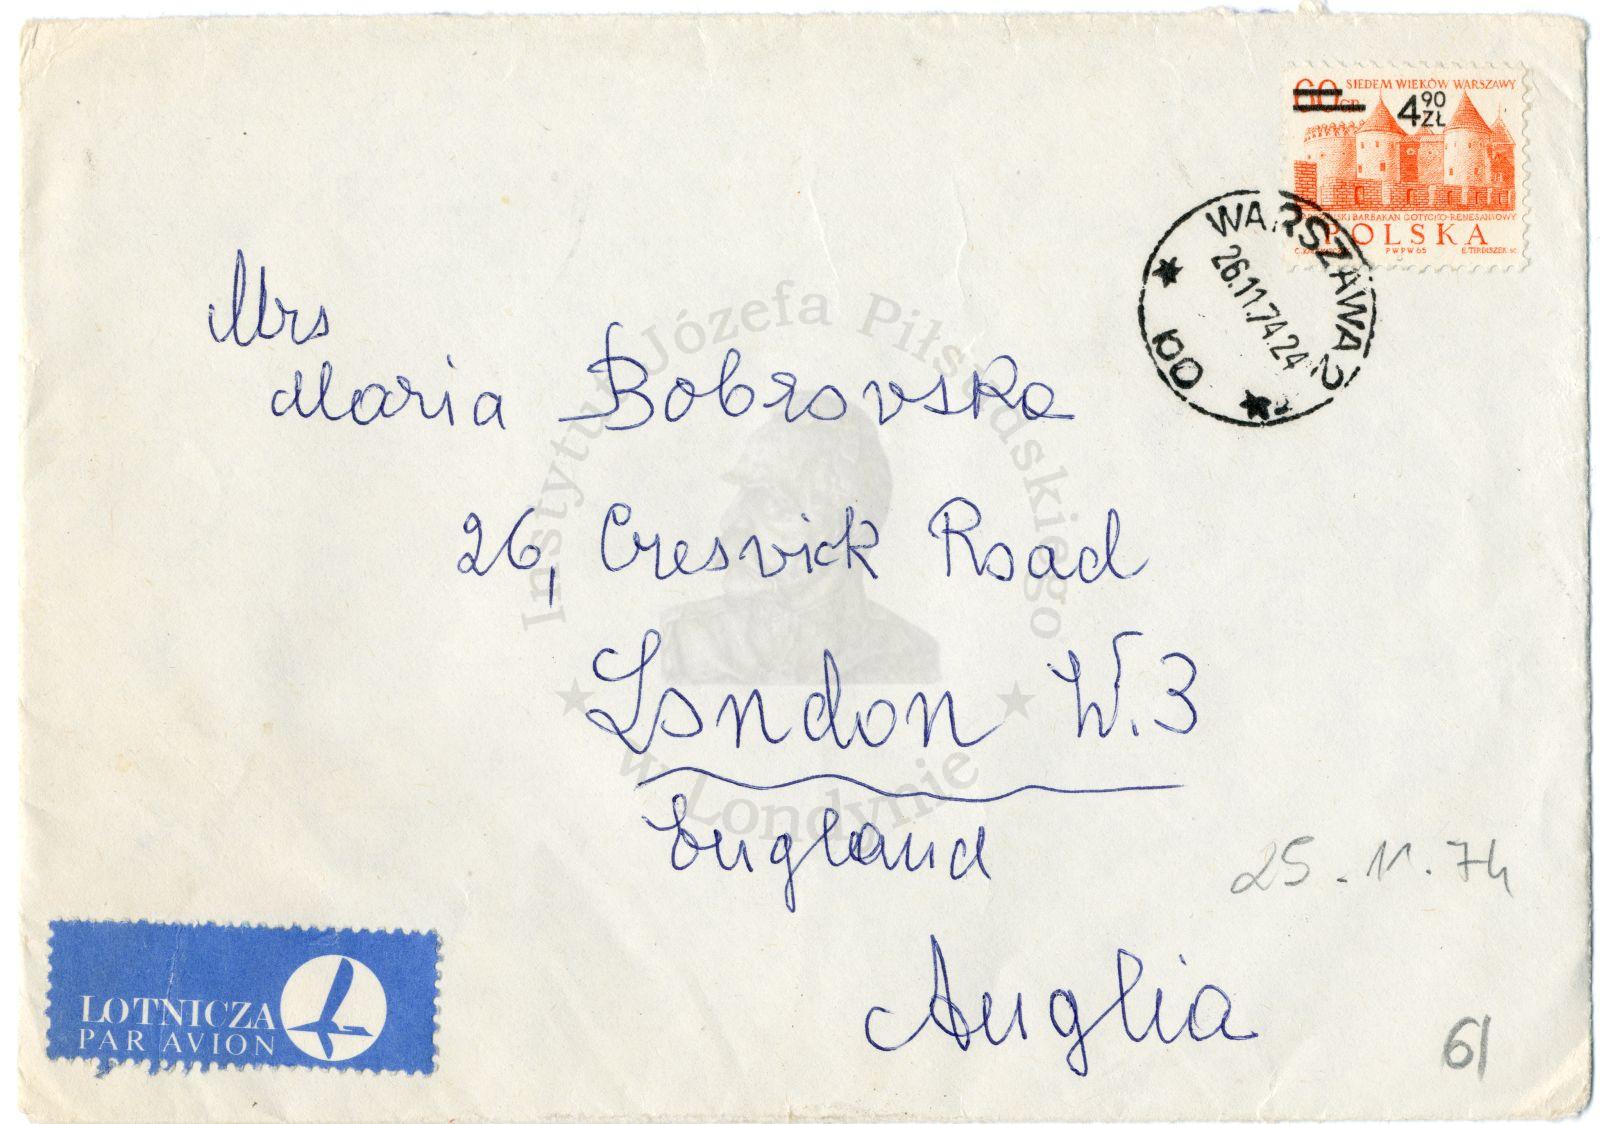 60 GR
SIEDEM WIEKÓW WARSZAWY
4 90 ZŁ
BARBAKAN GOTYCKO-RENESANSOWY
POLSKA
PWPW 65
WARSZAWA 2
26.11.74.24
Mrs
Maria Bobrovska
26, Cresvick Road
London W.3
England
Anglia
25.11.74
61
LOTNICZA
PAR AVION
Instytut Józefa Piłsudskiego
w Londynie